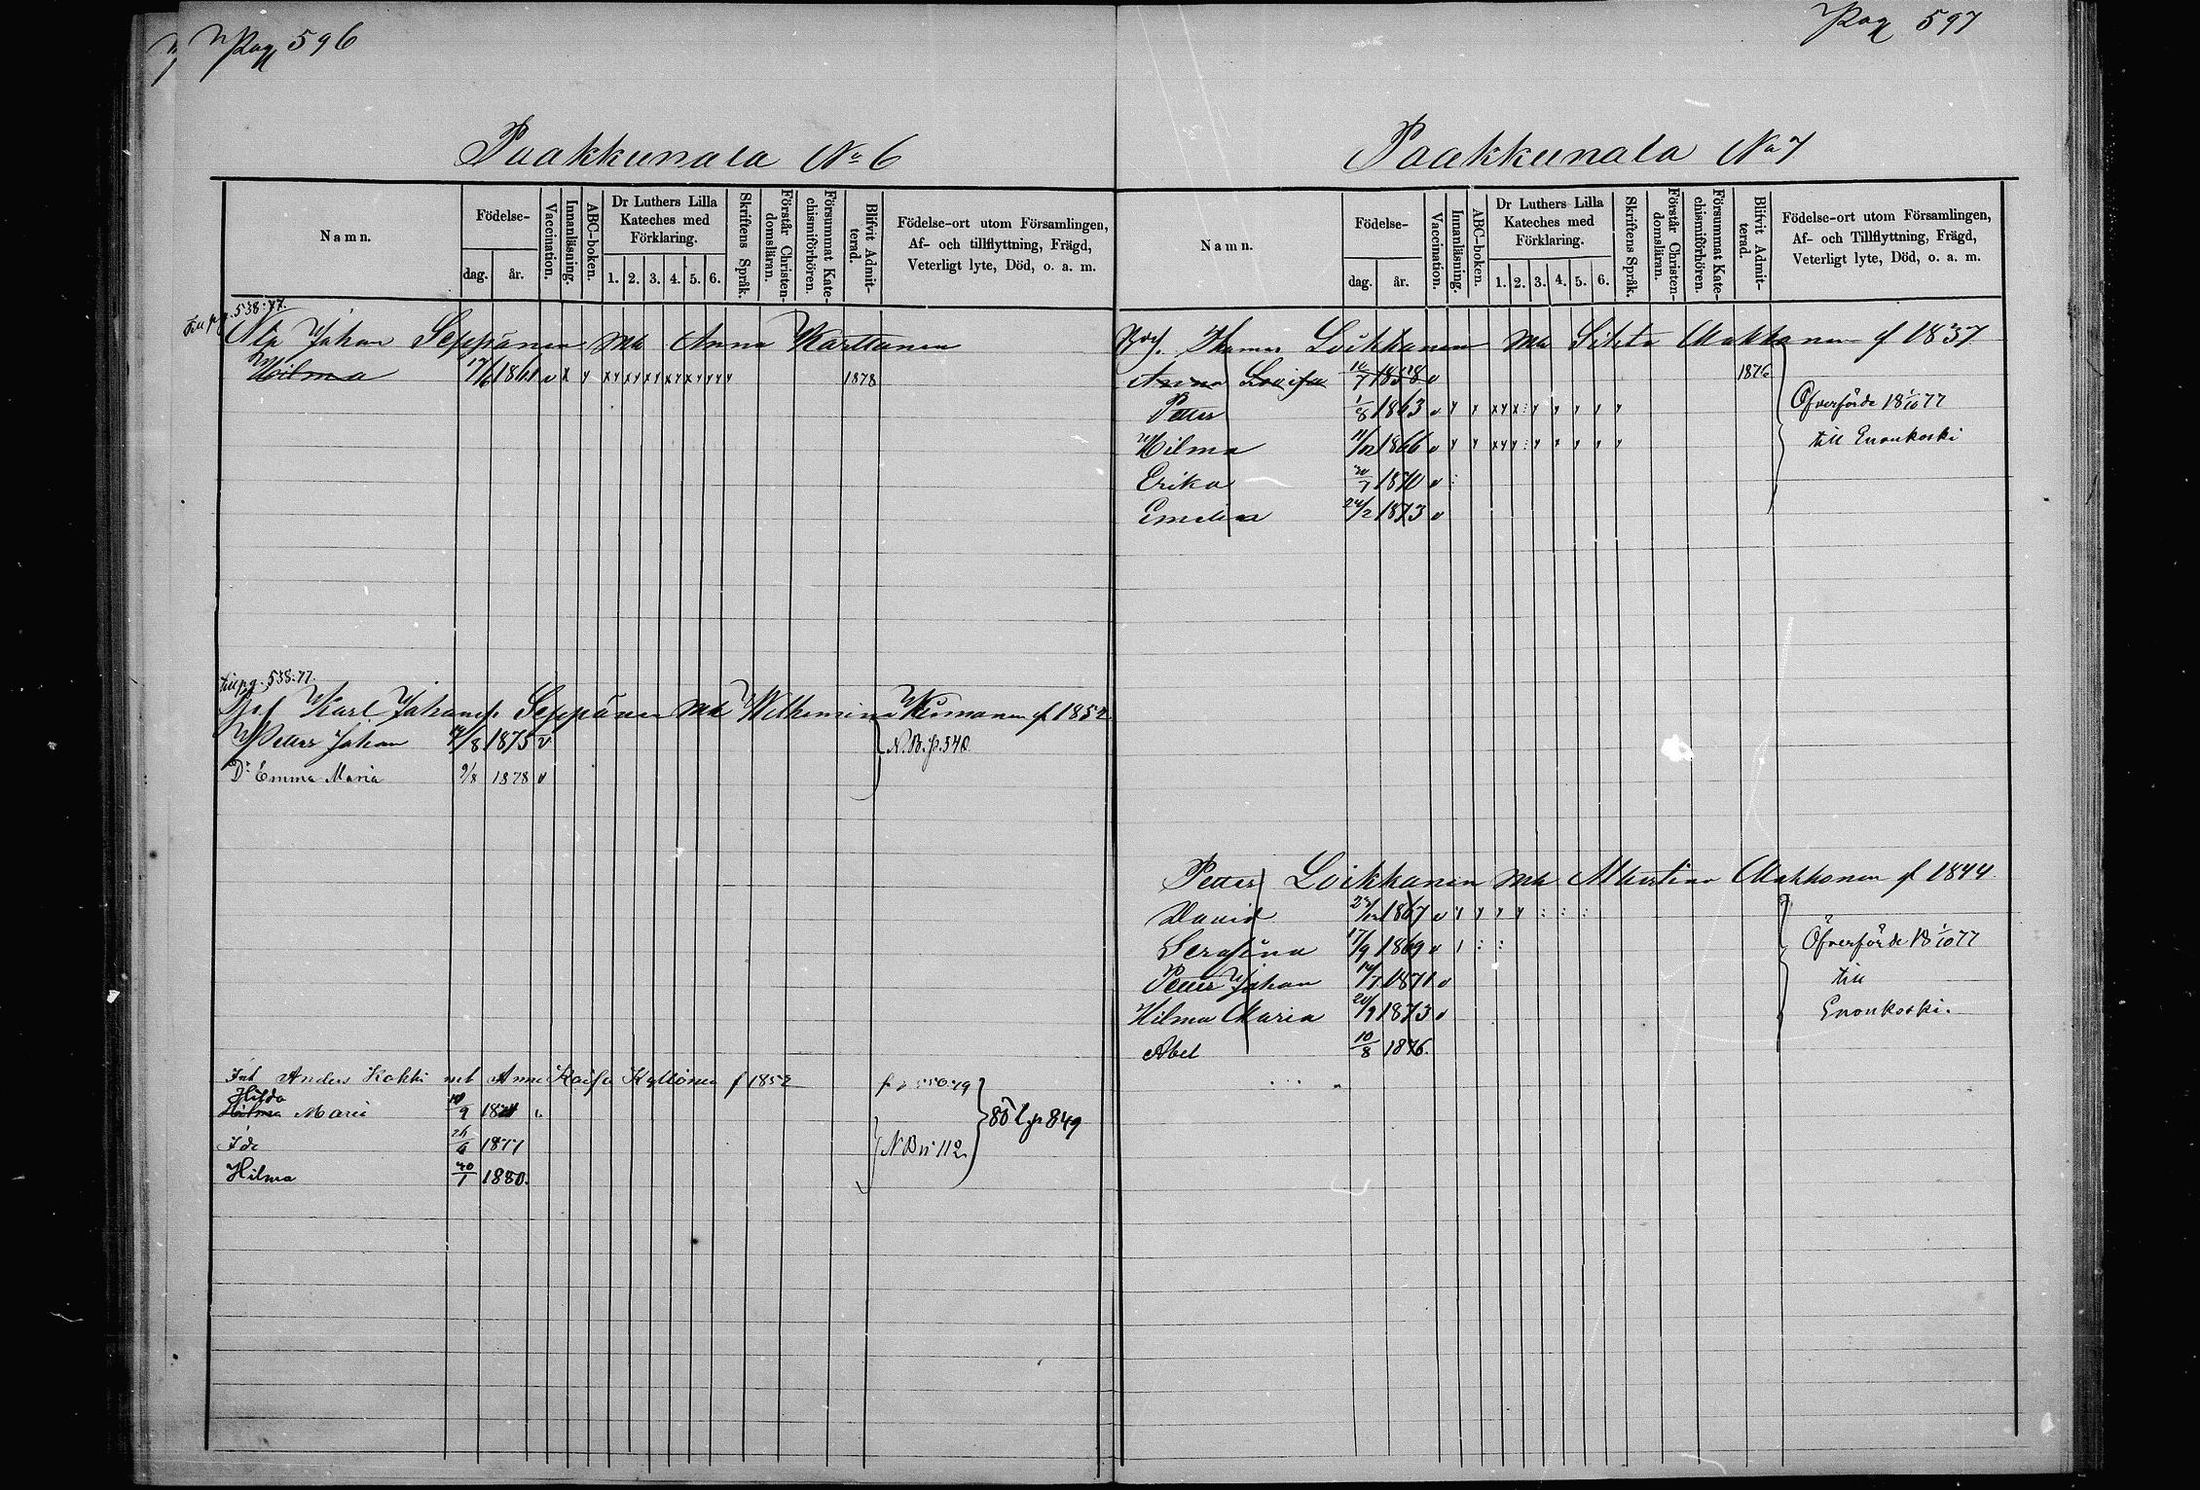 Pag 596
Paakkunala No 6
Namn.
Födelse-
dag.
år.
Vaccination.
Innanläsning.
ABC-boken.
Dr Luthers Lilla
Kateches med
Förklaring.
1. 2. 3. 4. 5. 6.
Skriftens Språk.
Förstår Christen-
domsläran.
Försummat Kate-
chismiförhören.
Blifvit Admit-
terad.
Födelse-ort utom Församlingen,
Af- och tillflyttning, Frägd,
Veterligt lyte, Död, o. a. m.
538.77.
Johan Seppänen mh Anna Karttunen
Wilma 17/6 1861 v x y xy xy xy xy xy yy y 1878
538.77.
Karl Johans. Seppänen mh Wilhemina f 1852
Petter Johan 14/8 1875 v N.B. p. 540.
Dr Emma Maria 9/8 1878 v
Anders Kokki mh Anna Kaisa Kyllönen f 1852
Hilda
Hilma Maria 9
Ida 1877 N B 112
Hilma 1 1880. 849
Pag 597
Paakkunala No 7
Namn.
Födelse-
dag.
år.
Vaccination.
Innanläsning.
ABC-boken.
Dr Luthers Lilla
Kateches med
Förklaring.
1. 2. 3. 4. 5. 6.
Skriftens Språk.
Förstår Christen-
domsläran.
Försummat Kate-
chismiförhören.
Blifvit Admit-
terad.
Födelse-ort utom Församlingen,
Af- och Tillflyttning, Frägd,
Veterligt lyte, Död, o. a. m.
Thomas Loikkanen mh Makkonen f 1837
Anna Lovisa 1858 v 1876
Petter 1/8 1863 v y y xy x : y y y y y Öfverförde 18 1/10 77
Hilma 11/12 1866 v y y xy y : y y y y y till Enonkoski
Erika 1870 v :
Emelina 24/2 1873 v
Petter Loikkanen mh Albertina Makkonen f 1844
David 1867 v y y y y : : :
Serafina 17/9 1869 v 1 : : Öfverförde 18 1/10 77
Petter Johan 1871 v till
Hilma Maria 20/9 1873 v Enonkoski.
Abel 10/8 1876.